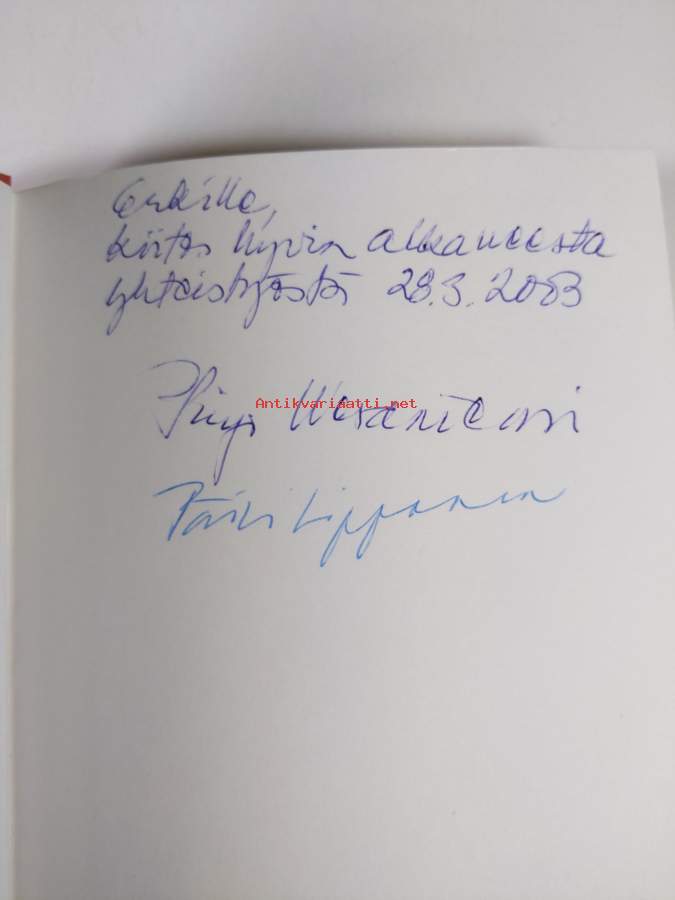 Erkille,
kiitos hyvin alkaneesta
yhteistyöstä 28.3.2003
Antikvariaatti.net
Päivi Lipponen